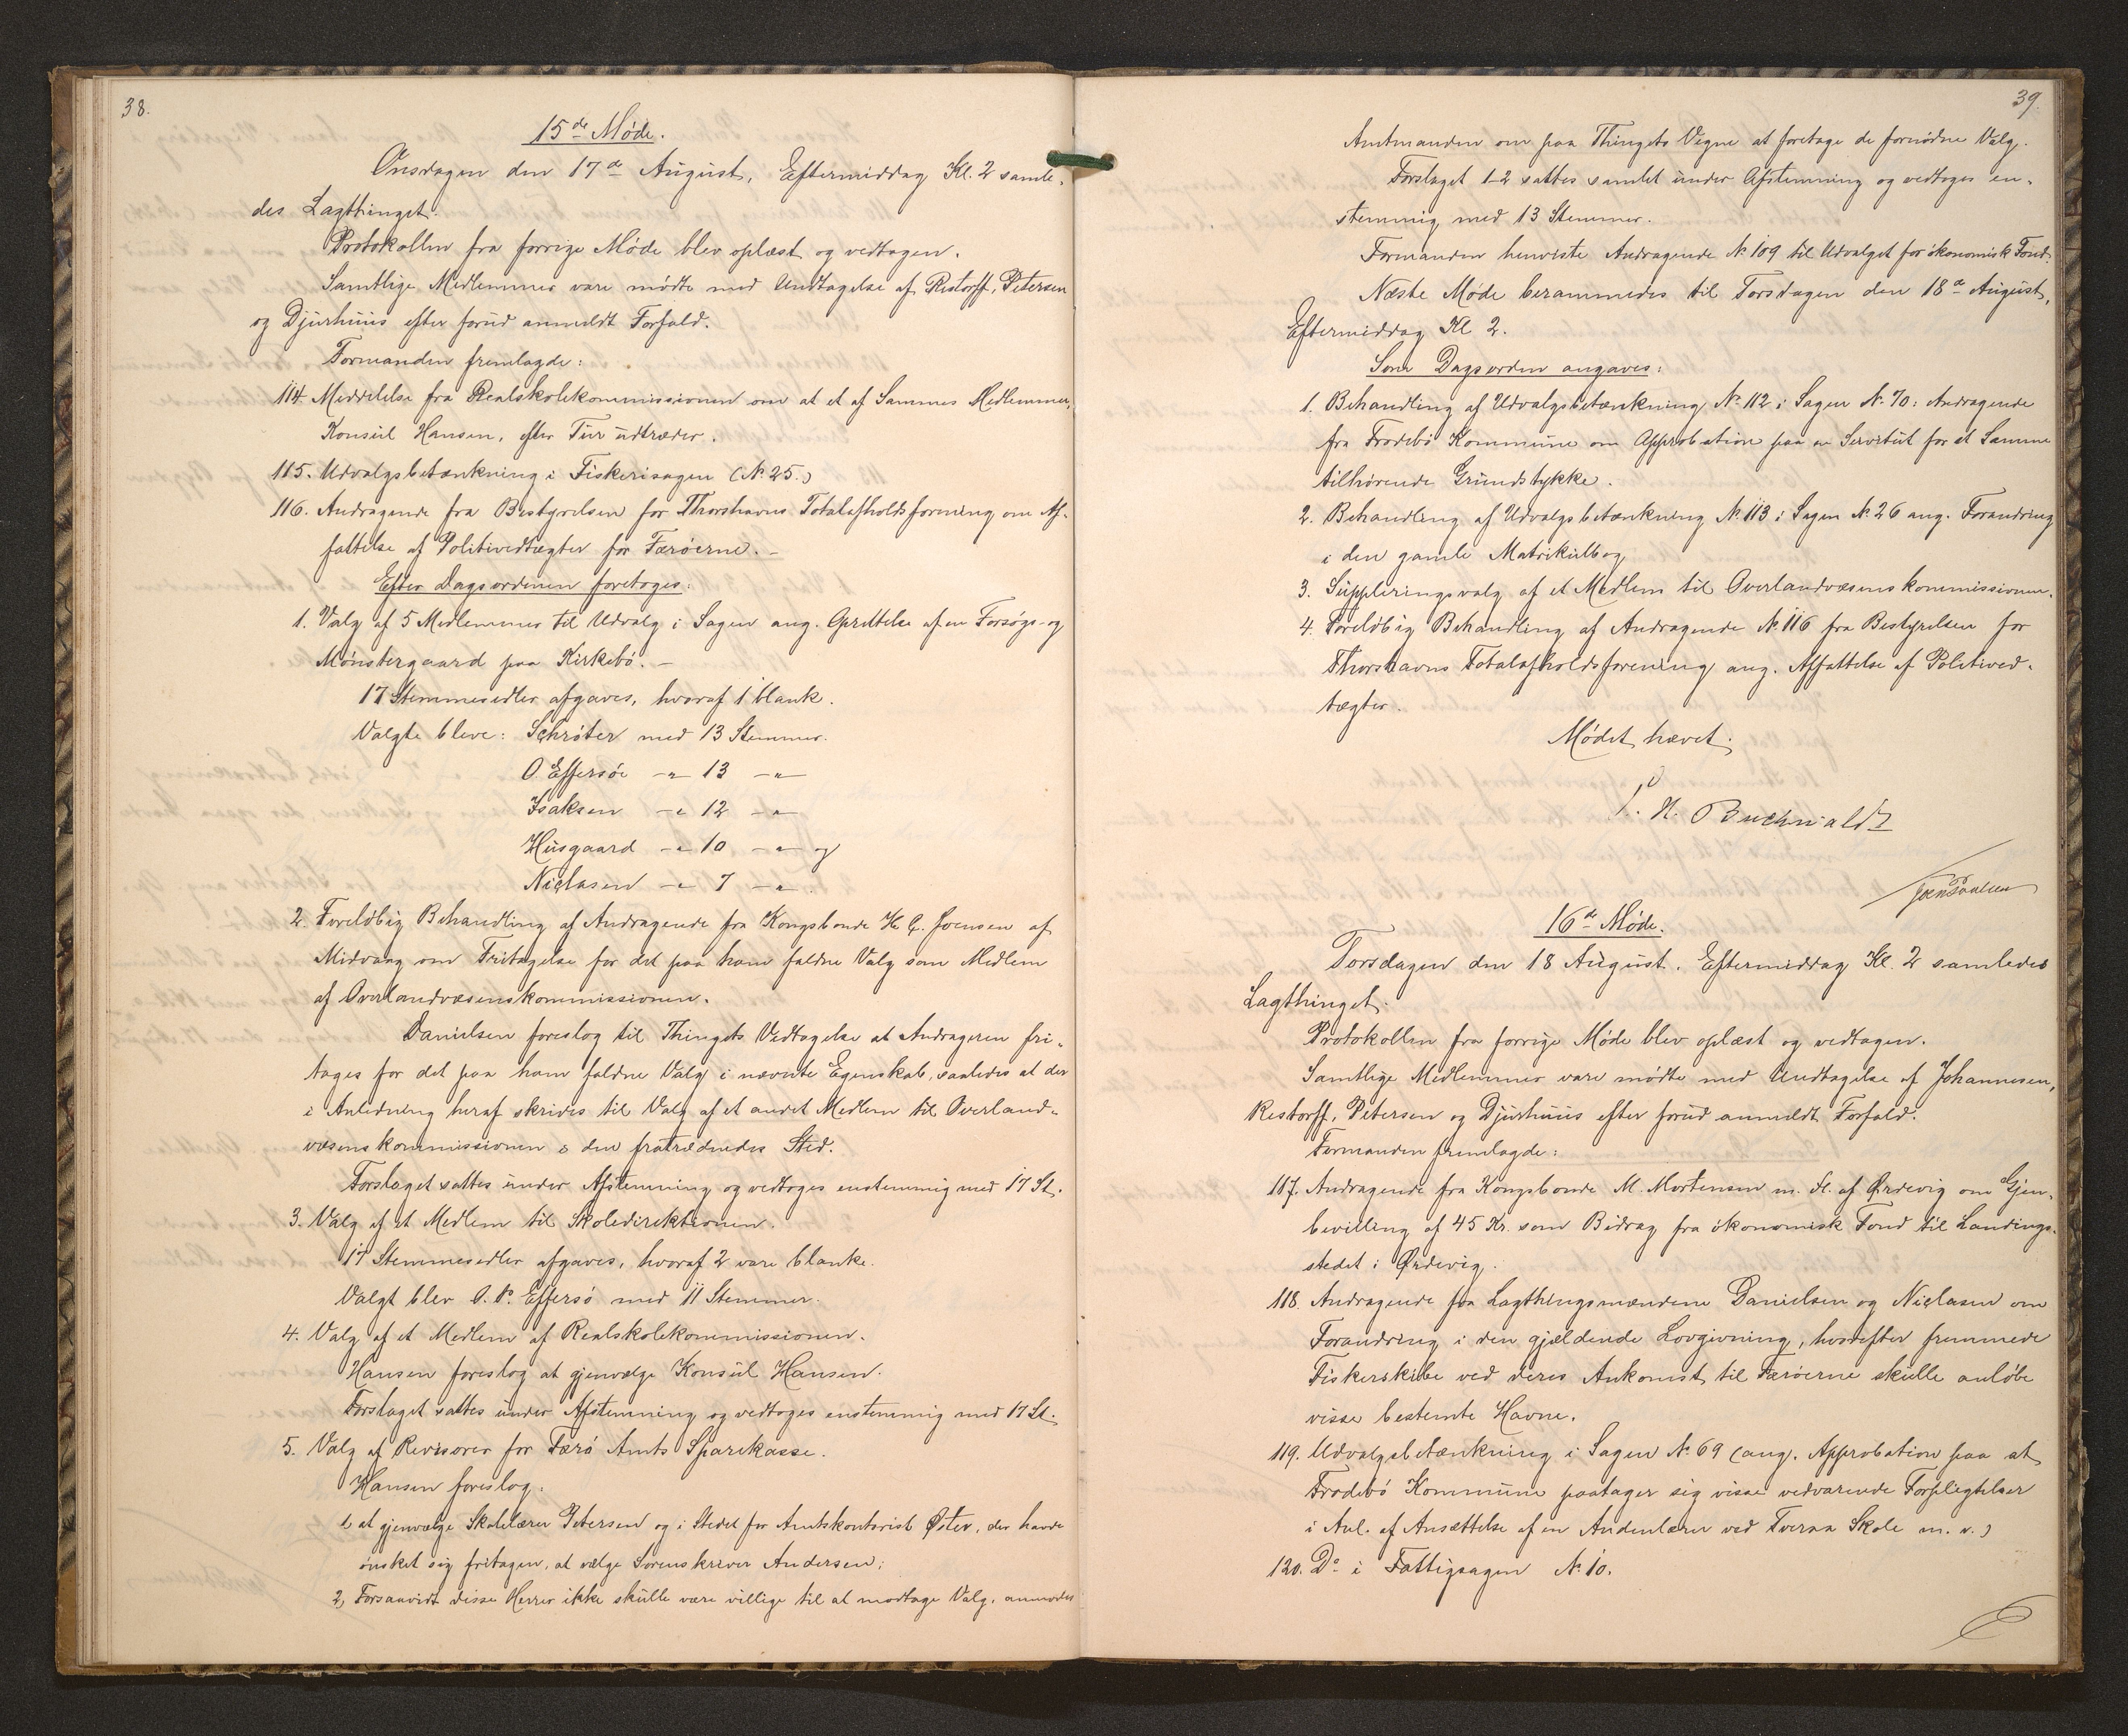 38.
15de Møde.
Onsdagen den 17de August, Eftermiddag Kl. 2 samle-
des Lagthinget.
Protokollen fra forrige Møde blev oplæst og vedtagen.
Samtlige Medlemmer vare mødte med Undtagelse af Restorff, Petersen
og Djurhuus efter forud anmeldt Forfald.
Formanden fremlagde:
114. Meddelelse fra Realskolekommissionen om at et af Sammes Medlemmer,
Konsul Hansen, efter Tur udtræder.
115. Udvalgsbetænkning i Fiskerisagen (No 25.)
116. Andragende fra Bestyrelsen for Thorshavns Totalafholdsforening om Af-
fattelse af Politivedtægter for Færøerne. –
Efter Dagsordenen foretoges:
1. Valg af 5 Medlemmer til Udvalg i Sagen ang. Oprettelse af en Forsøgs- og
Mønstergaard paa Kirkebø. –
17 Stemmesedler afgaves, hvoraf 1 blank.
Valgte bleve: Schrøter med 13 Stemmer.
O. Effersøe –"– 13 –"–
Isaksen –"– 12 –"–
Husgaard –"– 10 –"– og
Niclasen –"– 7 –"–.
2. Foreløbig Behandling af Andragende fra Kongsbonde H. C. Joensen af
Midvaag om Fritagelse for det paa ham faldne Valg som Medlem
af Overlandvæsenskommissionen.
Danielsen foreslog til Thingets Vedtagelse at Andrageren fri-
tages for det paa ham faldne Valg i nævnte Egenskab, saaledes at der
i Anledning heraf skrides til Valg af et andet Medlem til Overland-
væsenskommissionen i den fratrædendes Sted.
Forslaget sattes under Afstemning og vedtoges enstemmig med 17 St.
3. Valg af et Medlem til Skoledirektionen.
17 Stemmesedler afgaves, hvoraf 2 vare blanke.
Valgt blev O. P. Effersø med 11 Stemmer.
4. Valg af et Medlem af Realskolekommissionen.
Hansen foreslog at gjenvælge Konsul Hansen.
Forslaget sattes under Afstemning og vedtoges enstemmig med 17 St.
5. Valg af Revisorer for Færø Amts Sparekasse.
Hansen foreslog:
1, at gjenvælge Skolelærer Petersen og i Stedet for Amtskontorist Øster, der havde
ønsket sig fritagen, at vælge Sorenskriver Andersen;
2, Forsaavidt disse Herrer ikke skulle være villige til at modtage Valg, anmodes
39.
Amtmanden om paa Thingets Vegne at foretage de fornødne Valg.
Forslaget 1-2 sattes samlet under Afstemning og vedtoges en-
stemmig med 13 Stemmer.
Formanden henviste Andragende No 109 til Udvalget for økonomisk Fond.
Næste Møde berammedes til Torsdagen den 18de August,
Eftermiddag Kl. 2.
Som Dagsorden angaves:
1. Behandling af Udvalgsbetænkning No 112 i Sagen No 70: Andragende
fra Frodebø Kommune om Approbation paa en Servitut for et Samme
tilhørende Grundstykke.
2. Behandling af Udvalgsbetænkning No 113 i Sagen No 26 ang. Forandring
i den gamle Matrikulbog
3. Suppleringsvalg af et Medlem til Overlandvæsenskommissionen.
4. Foreløbig Behandling af Andragende No 116 fra Bestyrelsen for
Thorshavns Totalafholdsforening ang. Affattelse af Politived-
tægter.
Mødet hævet.
C. H. Buchwaldt
Joen Poulsen
16de Møde.
Torsdagen den 18 August, Eftermiddag Kl. 2 samledes
Lagthinget.
Protokollen fra forrige Møde blev oplæst og vedtagen.
Samtlige Medlemmer vare mødte med Undtagelse af Johannesen,
Restorff, Petersen og Djurhuus efter forud anmeldt Forfald.
Formanden fremlagde:
117. Andragende fra Kongsbonde M. Mortensen m. Fl. af Ørdevig om Gjen-
bevilling af 45 Kr. som Bidrag fra økonomisk Fond til Landings-
stedet i Ørdevig.
118. Andragende fra Lagthingsmændene Danielsen og Niclasen om
Forandring i den gjældende Lovgivning, hvorefter fremmede
Fiskerskibe ved deres Ankomst til Færøerne skulle anløbe
visse bestemte Havne.
119. Udvalgsbetænkning i Sagen No 69 (ang. Approbation paa at
Frodebø Kommune paatager sig visse vedvarende Forpligtelser
i Anl. af Ansættelse af en Andenlærer ved Tveraa Skole m. v.)
120. Do i Fattigsagen No 10.